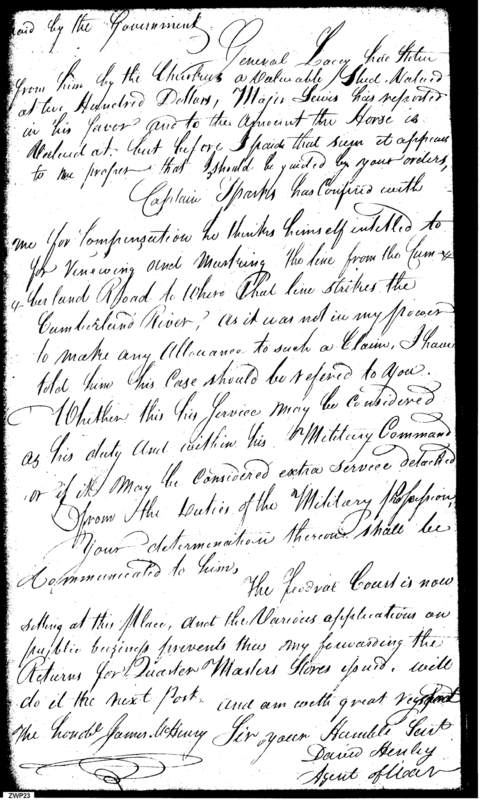 and by the Government
General Lacey had Stolen
from him by the Cherokees a Valuable Stud. Valued
at two Hundred Dollars, Major Lewis has reported
in his favor and to the Amount the Horse is
Valued at. but before I paid that sum it appears
to me proper that I should be guided by your orders,
Captain Sparks has Confired with
me for Compensation he thinks himself intitled to
for Viewing and Marking the line from the Cum-
berland Road to Where that line strikes the
Cumberland River, As it was not in my power
to make any Allowance to such a Claim, I have
told him his Case should be refered to you.
Whether this his Service may be considered
as his duty and within his Military Command
or if it may be Considered extra service detached
from the Duties of the Military profession,
Your determination thereon shall be
Communicated to him,
The Foedral Court is now
setting at this place, and the Various applications on
public business prevents thus my forwarding the
Returns for Quarter Masters Stores issued. will
do it the next Post. and am with great respect
The honble James McHenry Sir your Humble Servt
David Henley
Agent of War
ZWP23